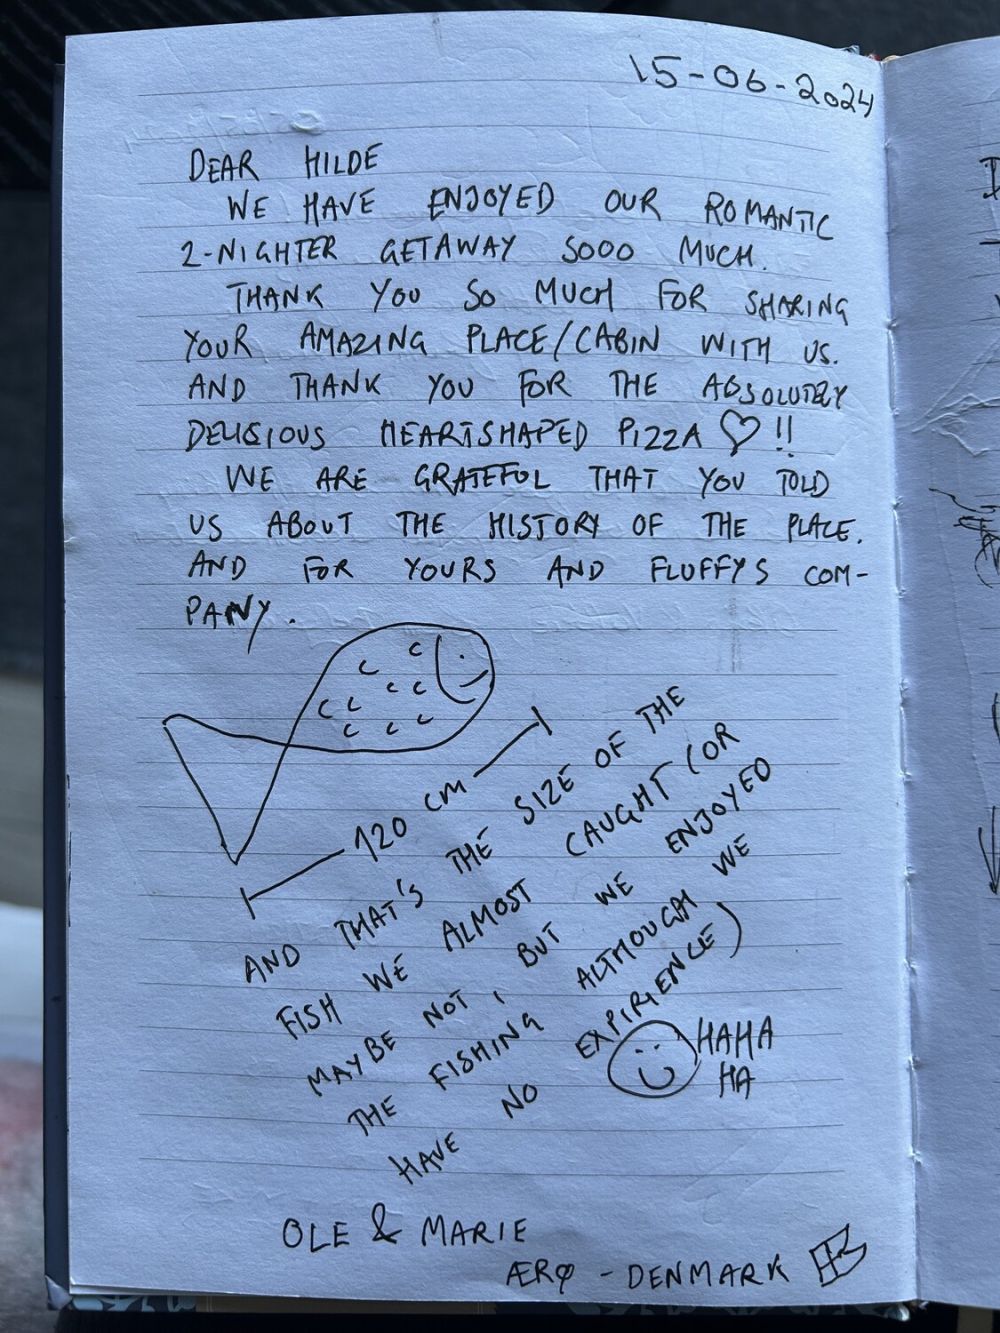 15-06-2024
DEAR HILDE
WE HAVE ENJOYED OUR ROMANTIC
2-NIGHTER GETAWAY SOOO MUCH.
THANK YOU SO MUCH FOR SHARING
YOUR AMAZING PLACE/CABIN WITH US.
AND THANK YOU FOR THE ABSOLUTELY
DELICIOUS HEARTSHAPED PIZZA ♡ !!
WE ARE GRATEFUL THAT YOU TOLD
US ABOUT THE HISTORY OF THE PLACE.
AND FOR YOURS AND FLUFFYS COM-
PANY.
120 cm
AND THAT'S THE SIZE OF THE
FISH WE ALMOST CAUGHT (OR
MAYBE NOT, BUT WE ENJOYED
THE FISHING ALTHOUGH WE
HAVE NO EXPIRIENCE)
HAHA
HA
OLE & MARIE
ÆRØ - DENMARK